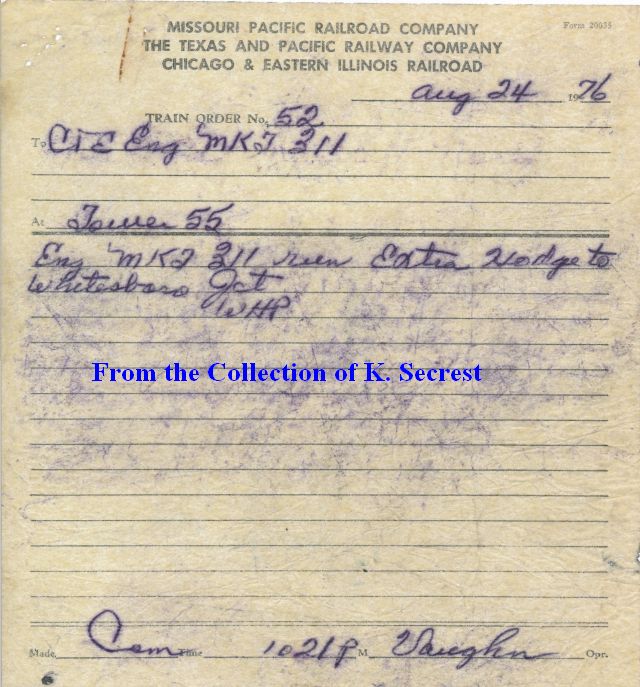 MISSOURI PACIFIC RAILROAD COMPANY
THE TEXAS AND PACIFIC RAILWAY COMPANY
CHICAGO & EASTERN ILLINOIS RAILROAD
Form 20055
Aug 24 1976
TRAIN ORDER No. 52
To C&E Eng MKT 311
At Tower 55
Eng MKT 311 run Extra Hodge to
Whitesboro Jct
WHP
From the Collection of K. Secrest
Made Com Time 1021P M Vaughn Opr.